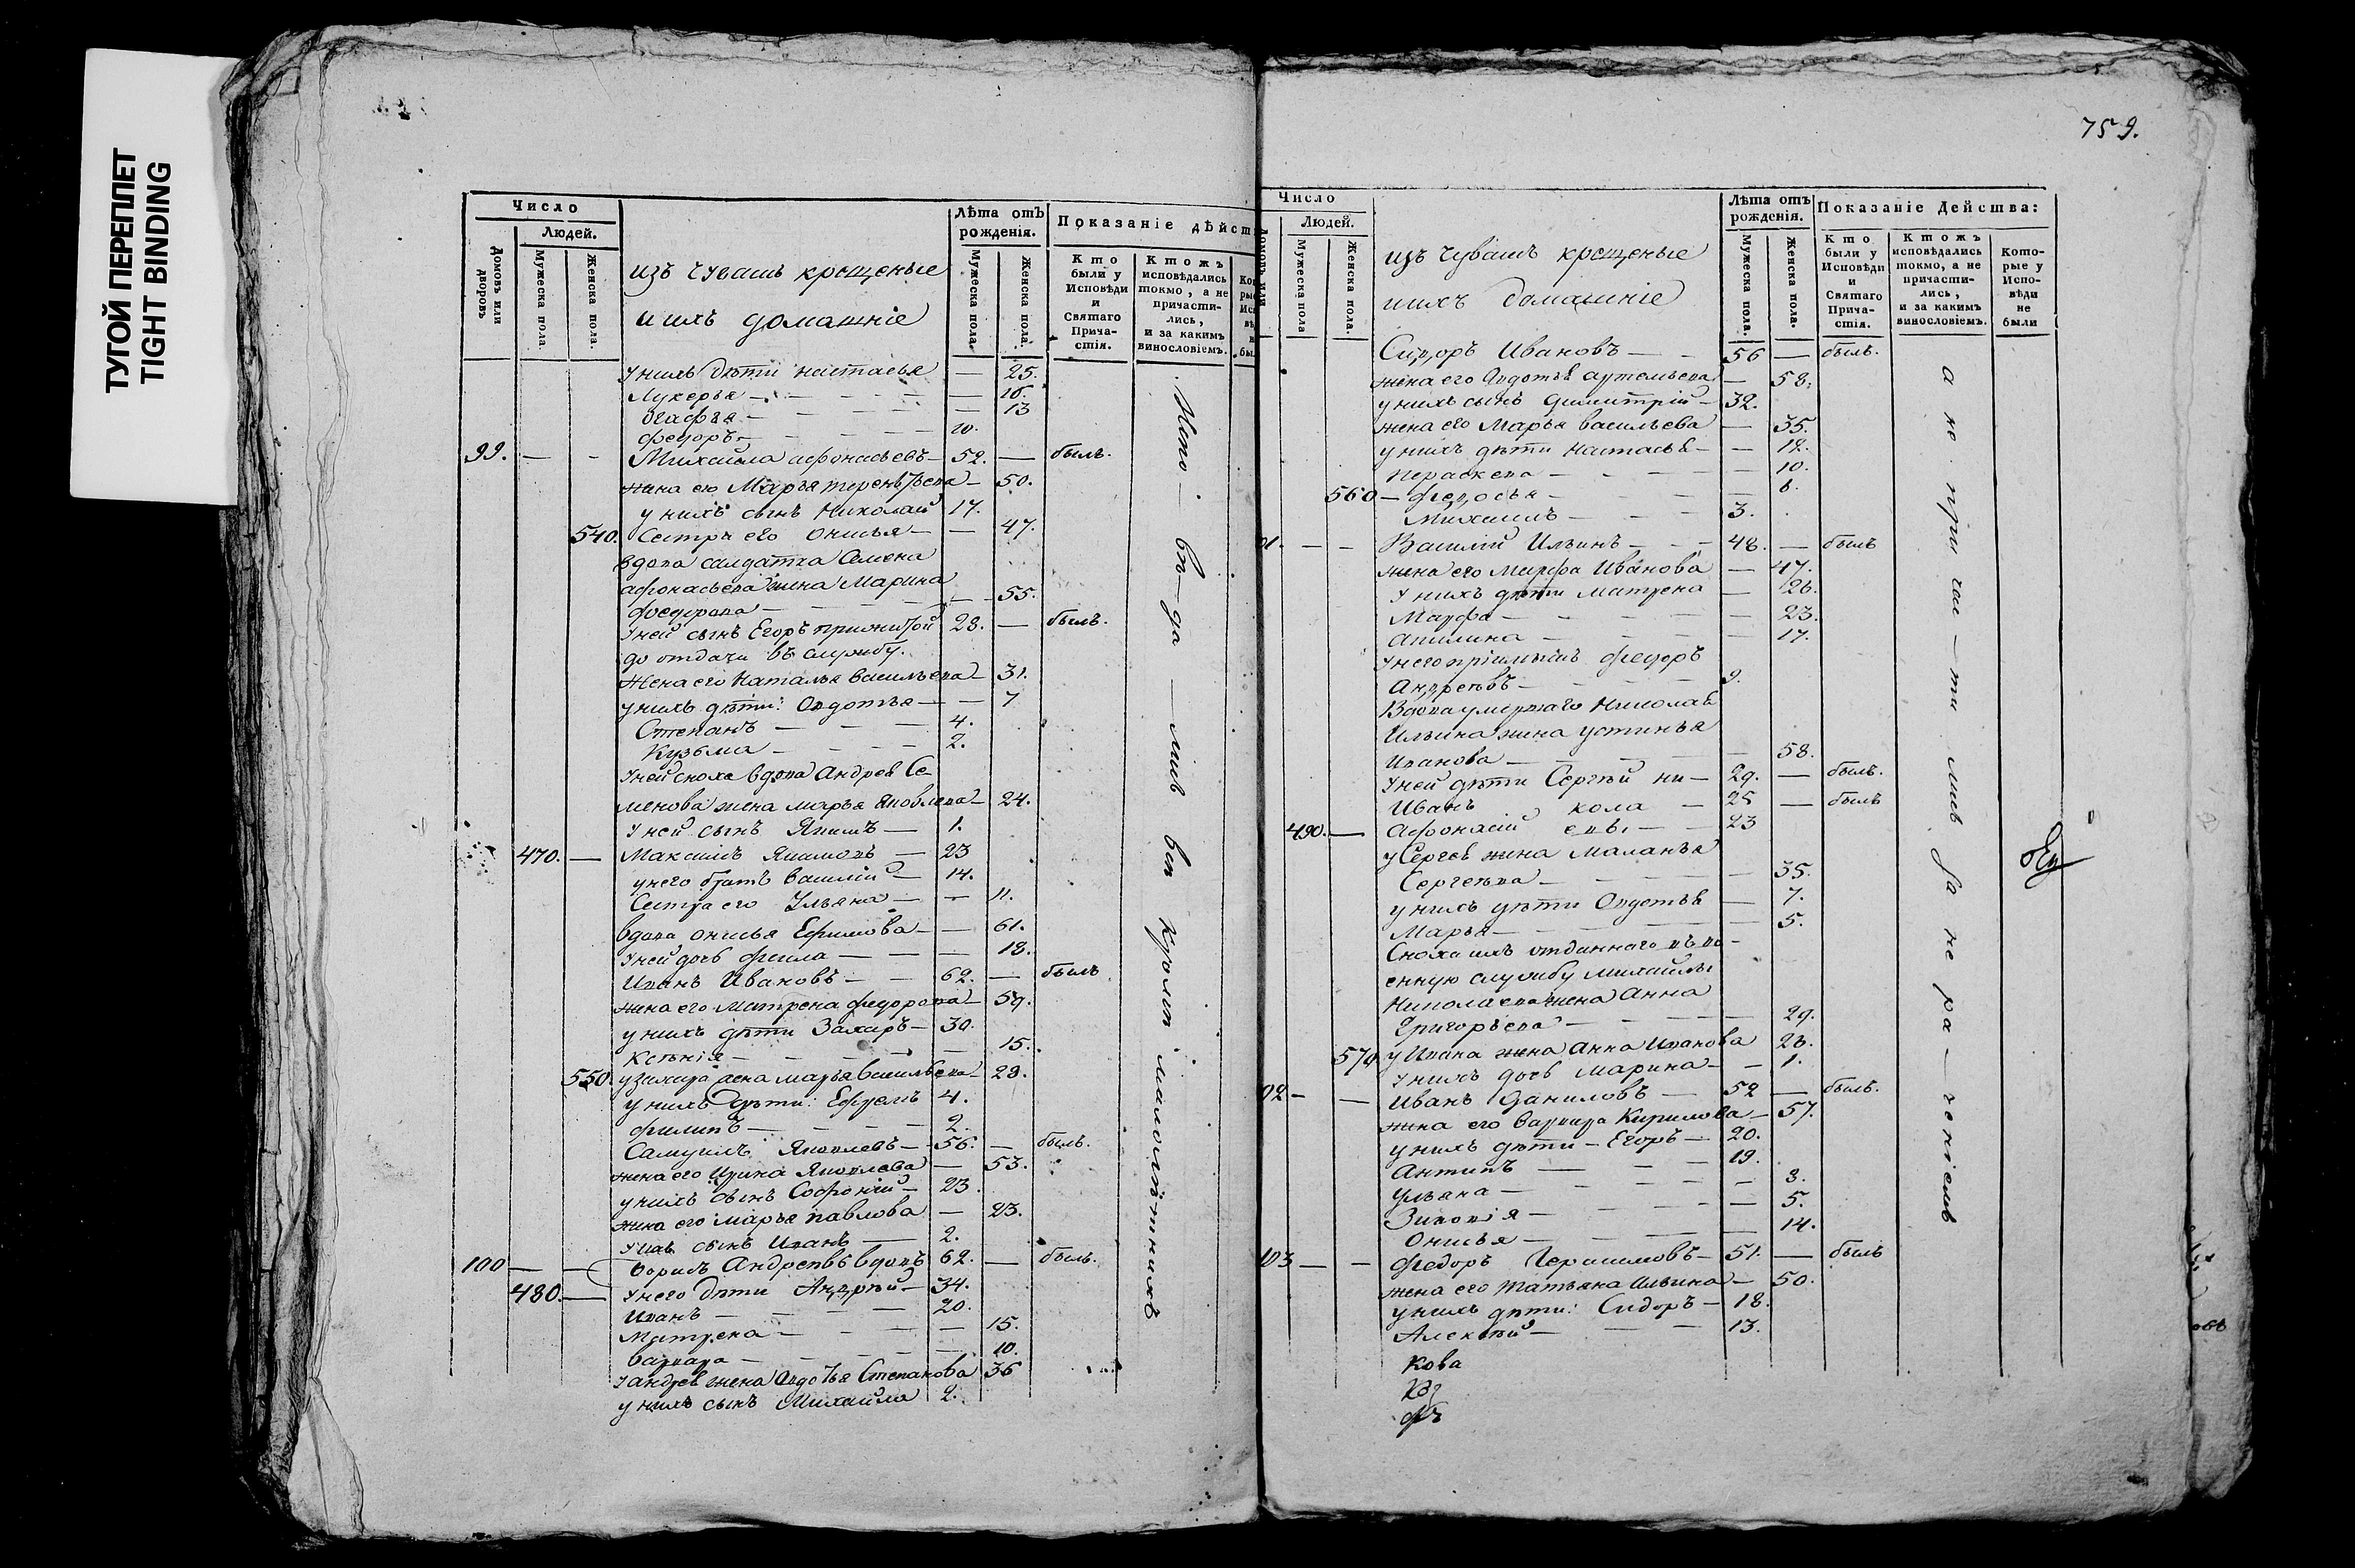 ТУГОЙ ПЕРЕПЛЕТ
TIGHT BINDING
Число
Людей.
Домовъ или дворовъ
Мужеска пола.
Женска пола.
изъ чувашъ крещеные
и ихъ домашніе
Лѣта отъ рожденія.
Мужеска пола.
Женска пола.
Показаніе дѣйст
Кто были у Исповѣди и Святаго Прича-стія.
Ктожъ исповѣдались токмо, а не причасти-лись, и за какимъ винословіемъ.
у нихъ дѣти настасья — 25.
Лукерья — — 16.
Огафья — — 13
федоръ — 10.
99. — - Михайла афонасьевъ — 52. — былъ.
жена его Марья терентьева — 50.
у нихъ сынъ Николай 17.
540. Сестра его Онисья — — 47.
вдова салдатка Семена
афонасьева жена Марина
федорова — — 55.
у ней сынъ Егоръ прижитой 28. — былъ.
до отдачи въ службу.
жена его Наталья васильева — 31.
у нихъ дѣти: Овдотья — — 7
Степанъ — 4.
Кузьма — 2.
у ней сноха вдова Андрея Се-
менова жена марья Яковлева — 24.
у ней сынъ Якимъ — 1.
470. — Максимъ Якимовъ — 23
у него братъ василій — 14.
Сестра его Ульяна — — 11.
вдова онисья Ефимова — — 61.
у ней дочь фекла — — 18.
Иванъ Ивановъ — 62. — былъ
жена его Матрена федорова — 59.
у нихъ дѣти Захаръ — 30.
Ксенія — — 15.
550. у Захара жена марья васильева — 28.
у нихъ дѣти: Ефремъ 4.
филипъ — 2.
Самуилъ Яковлевъ — 56. — былъ.
жена его Ирина Яковлева — 53.
у нихъ сынъ Софроній — 23.
жена его марья павлова — 23.
у нихъ сынъ Иванъ — 2.
100 — — Борисъ Андреевъ вдовъ 62. — былъ.
480. — у него дѣти Андрей — 34.
Иванъ — 20.
Матрена — — 15.
варвара — — 10.
у андрея жена Овдотья Степанова 36
у нихъ сынъ Михайла 2.
759.
Число
Людей.
Мужеска пола
Женска пола.
изъ чувашъ крещеные
и ихъ домашніе
Лѣта отъ рожденія.
Мужеска пола.
Женска пола.
Показаніе Действа:
Кто были у Исповѣди и Святаго Прича-стія.
Ктожъ исповѣдались токмо, а не причасти-лись, и за какимъ винословіемъ.
Кото-рые у Испо-вѣди не были
Сидоръ Ивановъ — 56 — былъ.
жена его Овдотья артемьева — 58.
у нихъ сынъ Димитрій — 32.
жена его Марья васильева — 35.
у нихъ дѣти настасья — — 12.
Параскева — — 10.
560 — федосья — — 6.
Михаилъ — 3.
01. — — Василій Ильинъ — 48. — былъ
жена его марфа Иванова — 47.
у нихъ дѣти матрена — 26.
Марфа — — 23.
акилина — — 17.
у него пріимышъ федоръ
Андреевъ — 9.
Вдова умершаго Николая
Ильина жена устинья
Иванова — — 58.
у ней дѣти Сергѣй ни — 29. — былъ.
Иванъ кола — 25 — былъ
490. — афонасій евы — 23
у Сергея жена Маланья
Сергеева — — 35.
у нихъ дѣти Овдотья — 7.
Марья — — 5.
Сноха ихъ отданнаго въ во-
енную службу михайлы
Николаева жена Анна
Григорьева — — 29.
570. у Ивана жена Анна Иванова 23.
у нихъ дочь Марина — — 1.
02 — — Иванъ Даниловъ — 52 — былъ.
жена его варвара Кирилова — 57.
у нихъ дѣти — Егоръ — 20.
Антипъ — 19.
Ульяна — — 8.
Зиновія — — 5.
Онисья — — 14.
103 — — Федоръ Герасимовъ — 51. — былъ
жена его татьяна Ильина — 50.
у нихъ дѣти: Сидоръ — 18.
Алексѣй — 13.
кова
а не при час — ти лись за не ра — ченіемъ